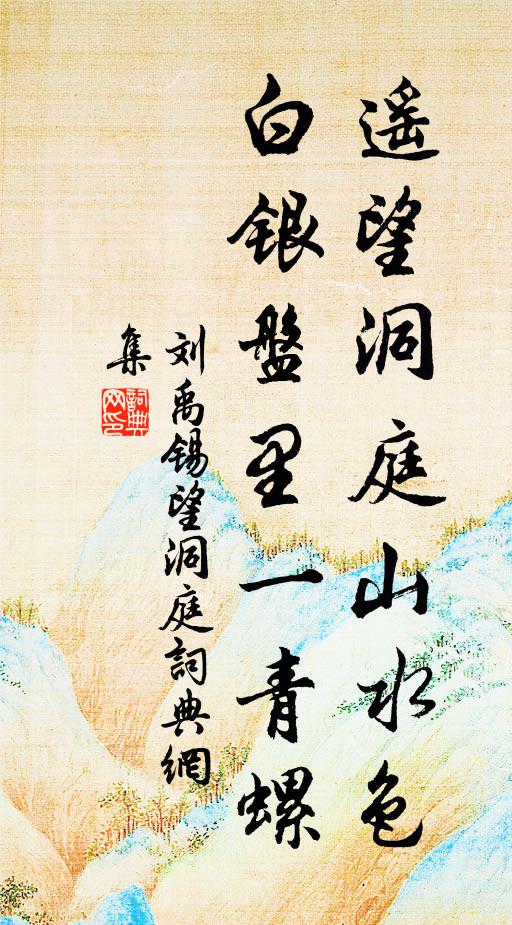 遥望洞庭山水色
白银盤里一青螺
刘禹锡望洞庭詞典網
集
詞典
网印